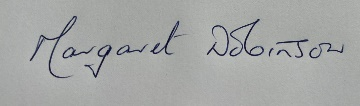 Margaret Dobinson